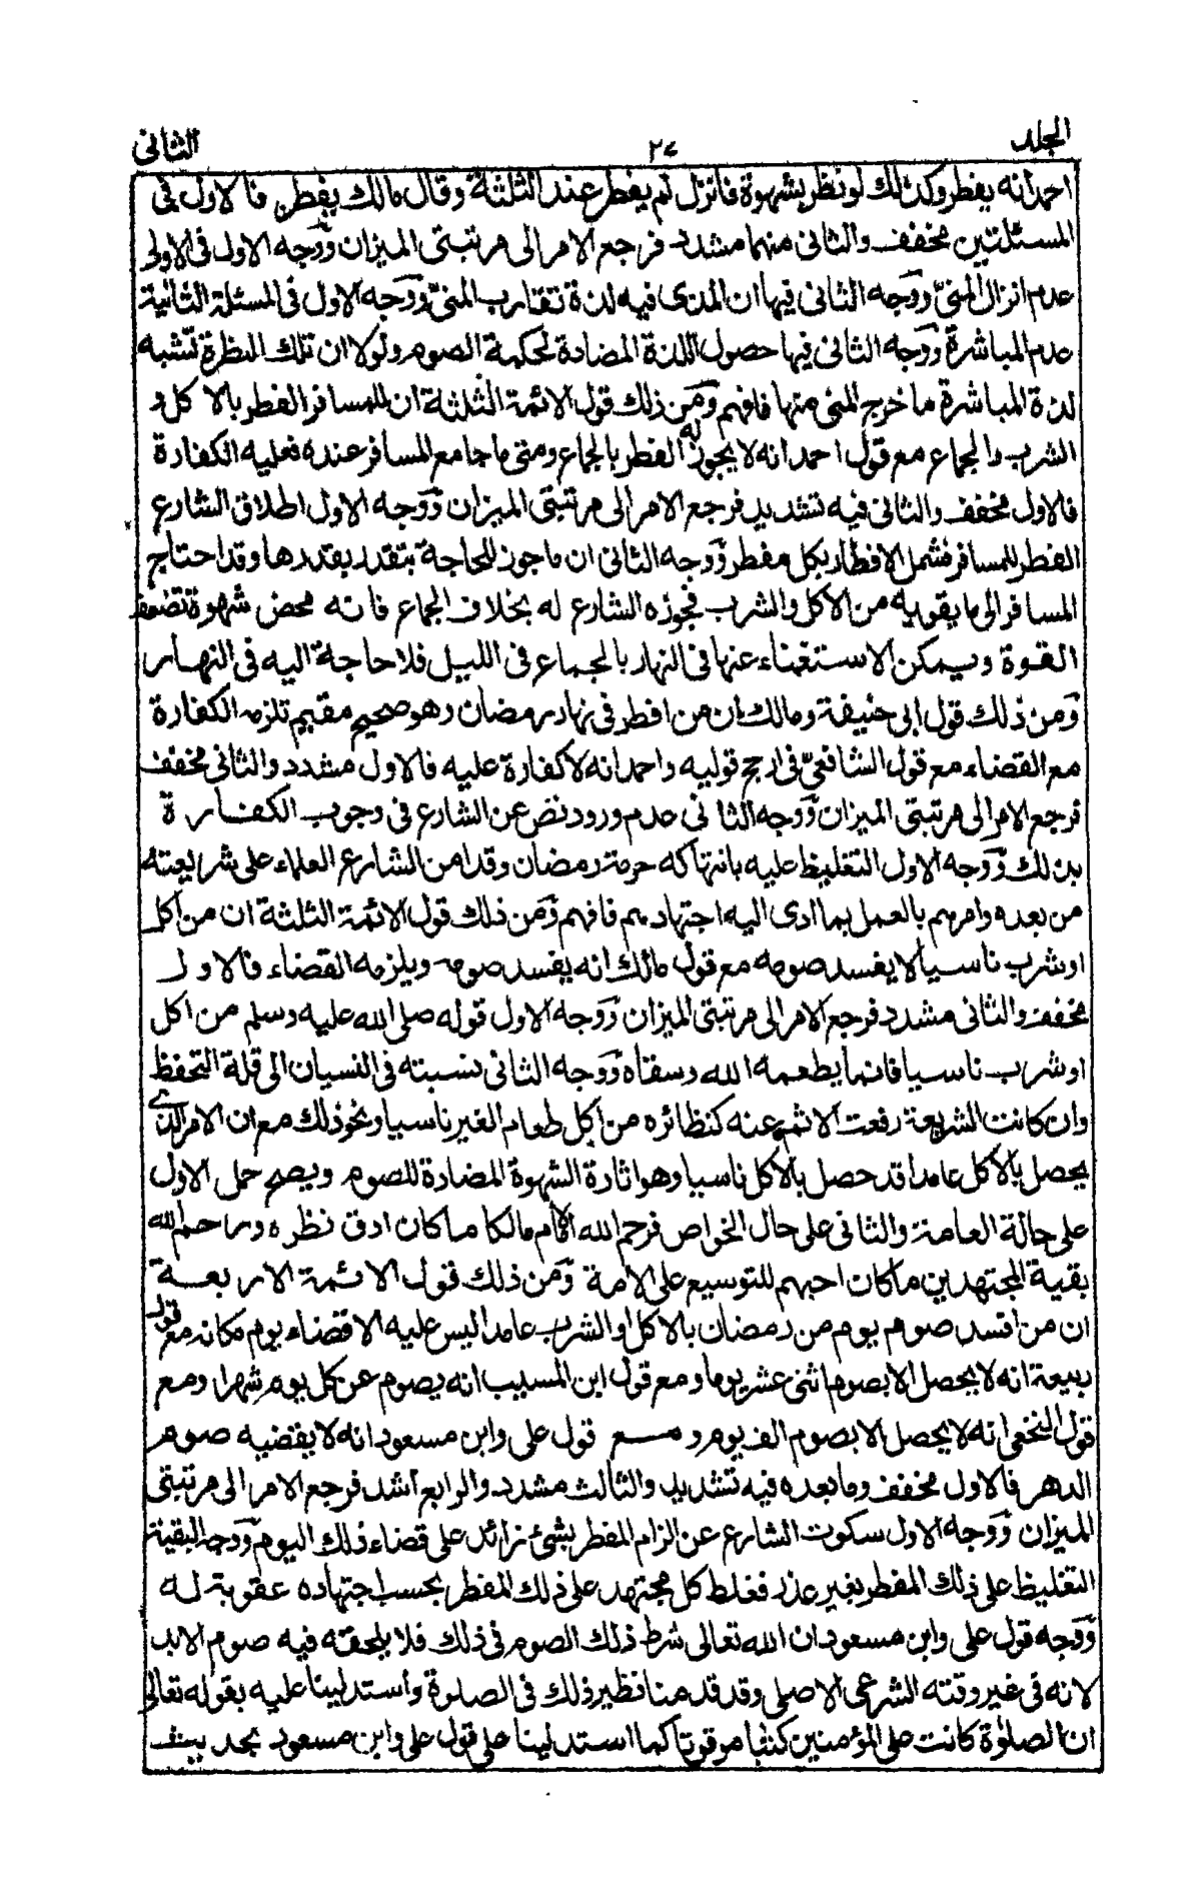 الجلد ٢٧ الثانى
احمد انه يفطر وكذلك لو نظر بشهوة فانزل لم يفطر عند الثلثة وقال مالك يفطر فالاول فى
المسئلتين مخفف والثانى منهما مشدد فرجع الامر الى مرتبتى الميزان ووجه الاول فى الاولى
عدم انزال المنىّ ووجه الثانى فيها ان المذى فيه لذة تقارب المنىّ ووجه الاول فى المسئلة الثانية
عدم المباشرة ووجه الثانى فيها حصول اللذة المضادة لحكمة الصوم ولولا ان تلك النظرة تشبه
لذة المباشرة ما خرج المنى منها فافهم ومن ذلك قول الائمة الثلثة ان للمسافر الفطر بالاكل و
الشرب والجماع مع قول احمد انه لا يجوز له الفطر بالجماع ومتى ما جامع المسافر عنده فعليه الكفارة
فالاول مخفف والثانى فيه تشديد فرجع الامر الى مرتبتى الميزان ووجه الاول اطلاق الشارع
الفطر للمسافر فشمل الافطار بكل مفطر ووجه الثانى ان ما جوز للحاجة يتقدر بقدرها وقد احتاج
المسافر الى ما يقويه من الاكل والشرب فجوزه الشارع له بخلاف الجماع فانه محض شهوة تضعف
القوة ويمكن الاستغناء عنها فى النهار بالجماع فى الليل فلا حاجة اليه فى النهار
ومن ذلك قول ابى حنيفة ومالك ان من افطر فى نهار رمضان وهو صحيح مقيم تلزمه الكفارة
مع القضاء مع قول الشافعىّ فى ارجح قوليه واحمد انه لا كفارة عليه فالاول مشدد والثانى مخفف
فرجع الامر الى مرتبتى الميزان ووجه الثانى عدم ورود نص عن الشارع فى وجوب الكفارة
بذلك ووجه الاول التغليظ عليه بانتهاكه حرمة رمضان وقد امن الشارع العلماء على شريعته
من بعده وامرهم بالعمل بما ادى اليه اجتهادهم فافهم ومن ذلك قول الائمة الثلثة ان من اكل
او شرب ناسيا لا يفسد صومه مع قول مالك انه يفسد صومه ويلزمه القضاء فالاول
مخفف والثانى مشدد فرجع الامر الى مرتبتى الميزان ووجه الاول قوله صلى الله عليه وسلم من اكل
او شرب ناسيا فانما يطعمه الله وسقاه ووجه الثانى نسبته فى النسيان الى قلة التحفظ
وان كانت الشريعة رفعت الاثم عنه كنظائره من اكل طعام الغير ناسيا ونحو ذلك مع ان الامر الذى
يحصل بالاكل عامدا قد حصل بالاكل ناسيا وهو اثارة الشهوة المضادة للصوم ويصح حمل الاول
على حالة العامة والثانى على حال الخواص فرحم الله الامام مالكا ما كان ادق نظره ورحم الله
بقية المجتهدين ما كان احبهم للتوسيع على الامة ومن ذلك قول الائمة الاربعة
ان من افسد صوم يوم من رمضان بالاكل او الشرب عامدا ليس عليه الا قضاء يوم مكانه مع قول
ربيعة انه لا يحصل الا بصوم اثنى عشر يوما ومع قول ابن المسيب انه يصوم عن كل يوم شهرا ومع
قول النخعى انه لا يحصل الا بصوم الف يوم ومع قول على وابن مسعود انه لا يقضيه صوم
الدهر فالاول مخفف وما بعده فيه تشديد والثالث مشدد والرابع اشد فرجع الامر الى مرتبتى
الميزان ووجه الاول سكوت الشارع عن الزام المفطر بشئ زائد على قضاء ذلك اليوم ووجه البقية
التغليظ على ذلك المفطر بغير عذر فغلظ كل مجتهد على ذلك المفطر بحسب اجتهاده عقوبة له
ووجه قول على وابن مسعود ان الله تعالى شرط ذلك الصوم فى ذلك فلا يلحقه فيه صوم الابد
لانه فى غير وقته الشرعى الاصلى وقد قدمنا نظير ذلك فى الصلوة واستدلينا عليه بقوله تعالى
ان الصلوة كانت على المؤمنين كتابا موقوتا كما استدلينا على قول على وابن مسعود بحديث